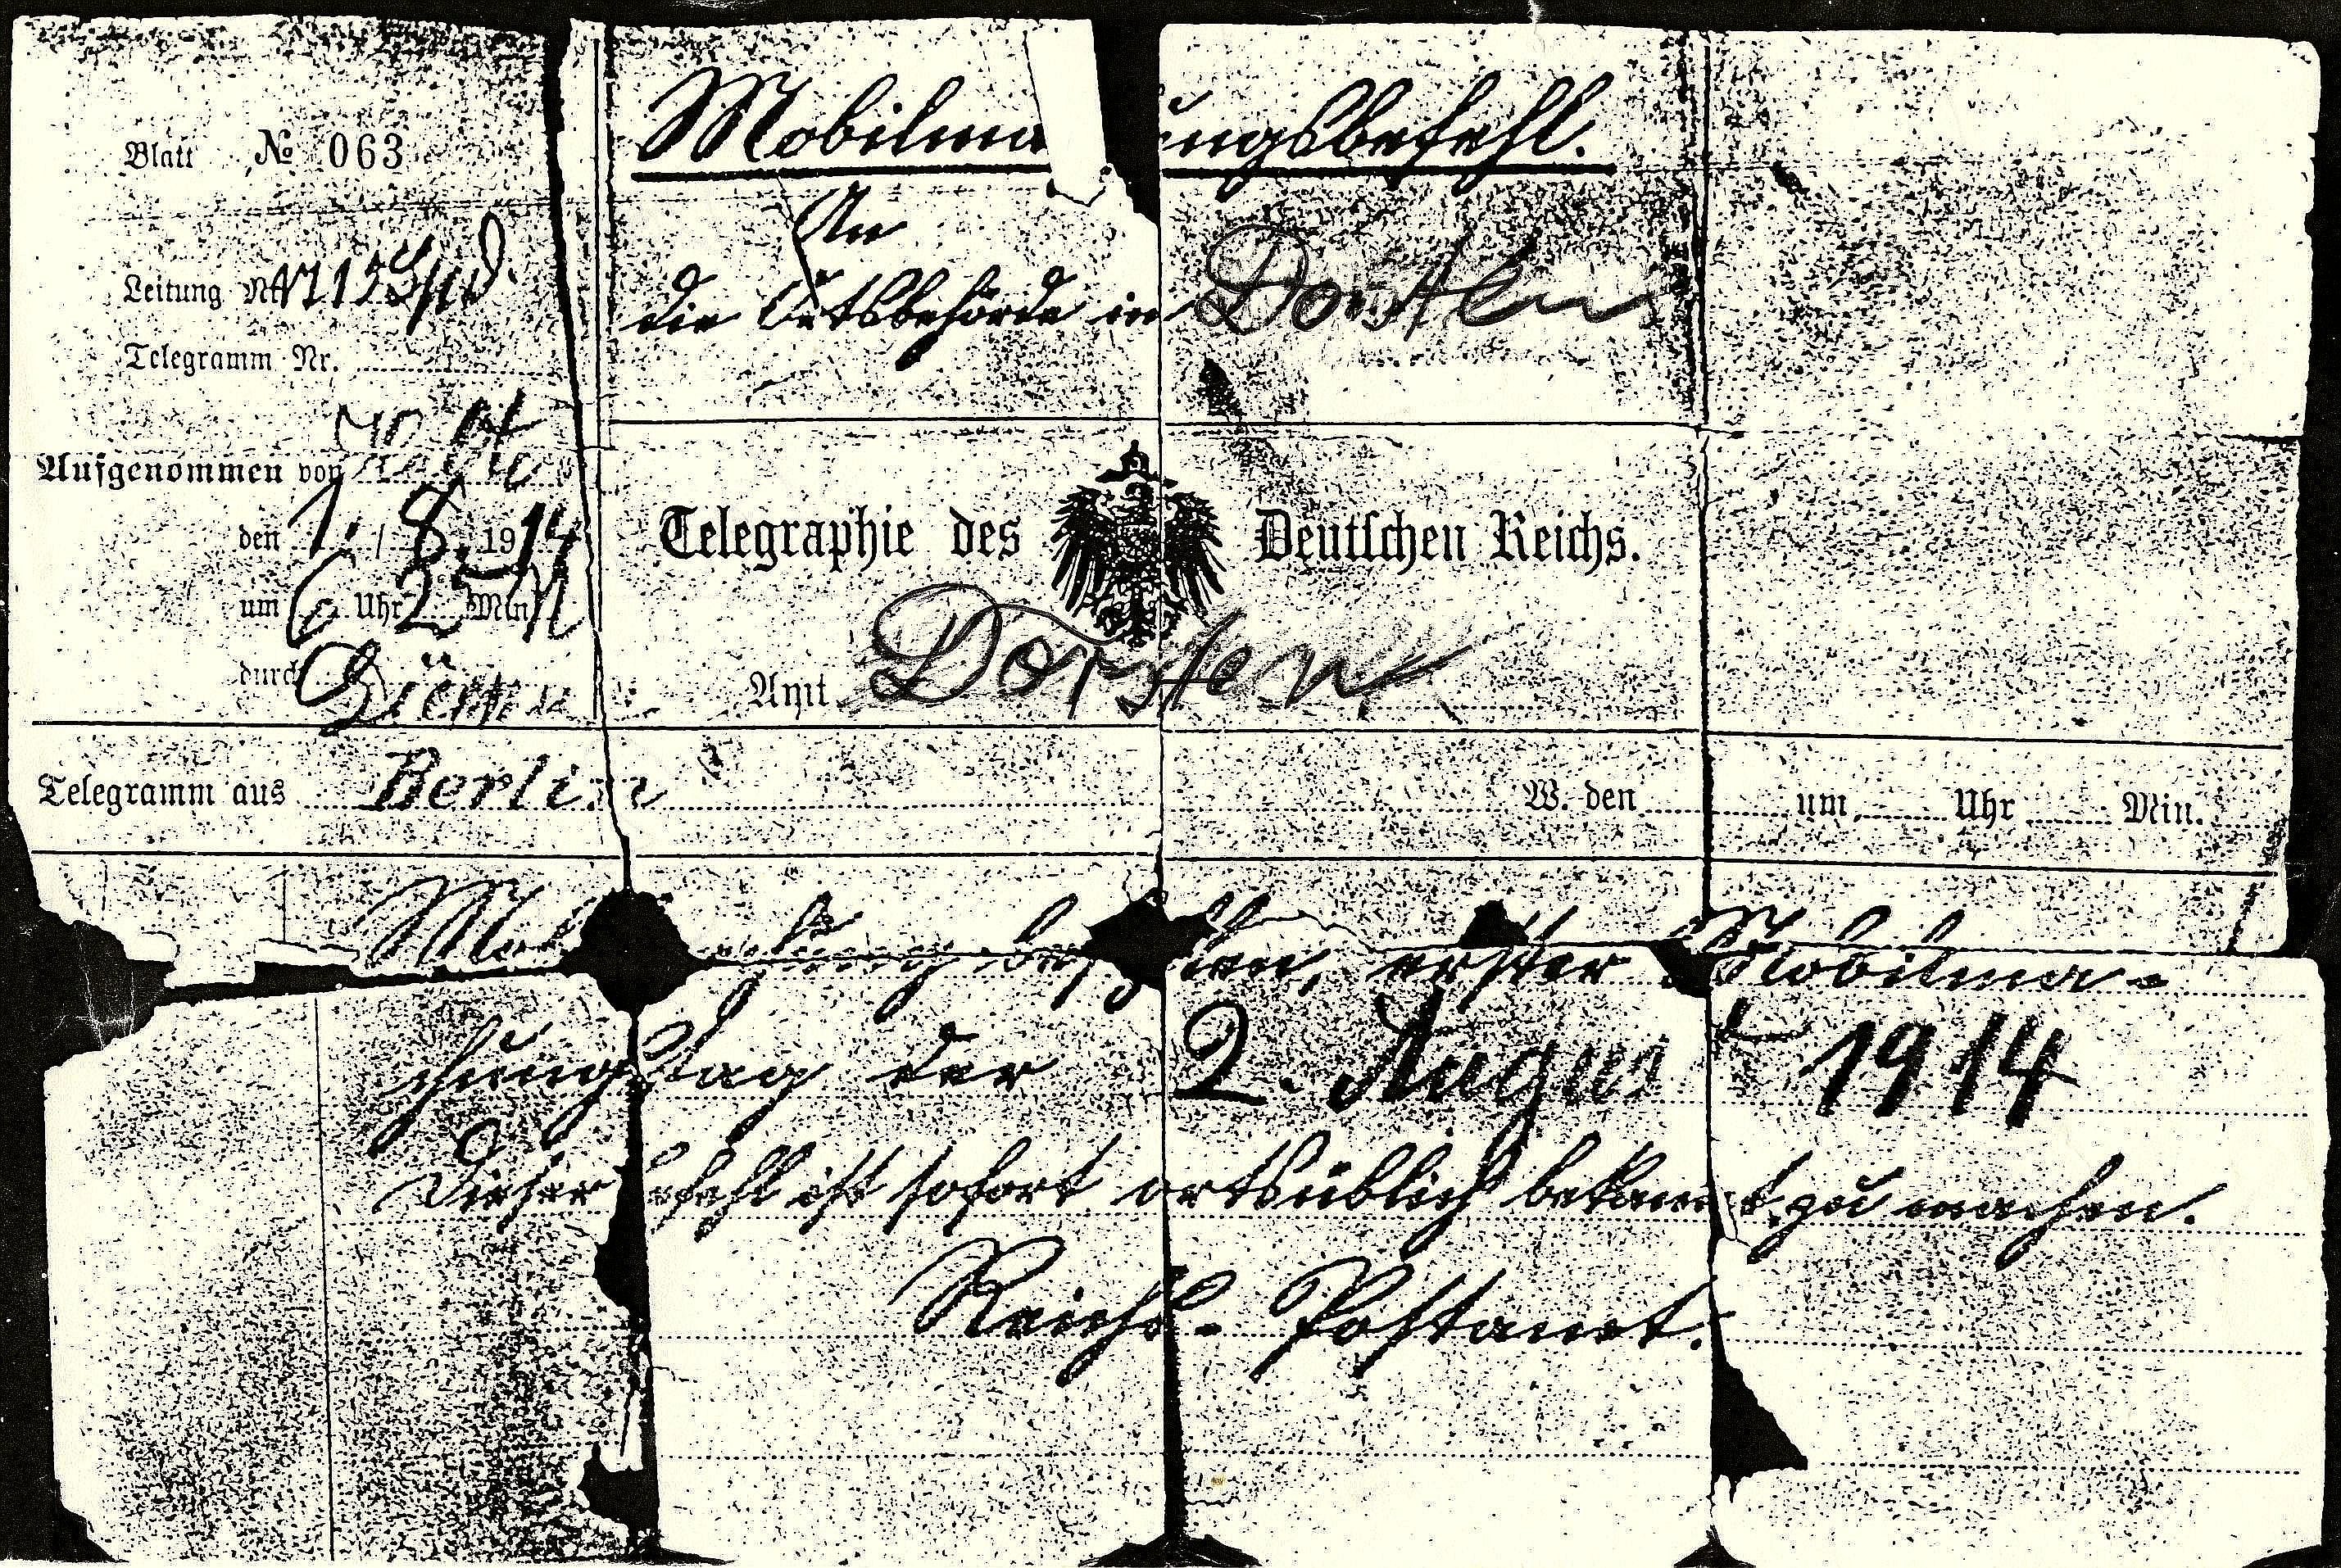 Blatt № 063
Leitung Nr.
Telegramm Nr.
Aufgenommen von
den 1. / 8. 1914
um 6 Uhr 25 Min N
durch
Mobilma ungsbefehl.
An
die Ortsbehörde in Dorsten
Telegraphie des Deutschen Reichs.
Amt Dorsten
Telegramm aus Berlin W. den um Uhr Min.
Mob chung befohlen, erster Mobilma-
chungstag der 2. August 1914
Dieser Befehl ist sofort ortsüblich bekannt zu machen.
Reichs-Postamt.